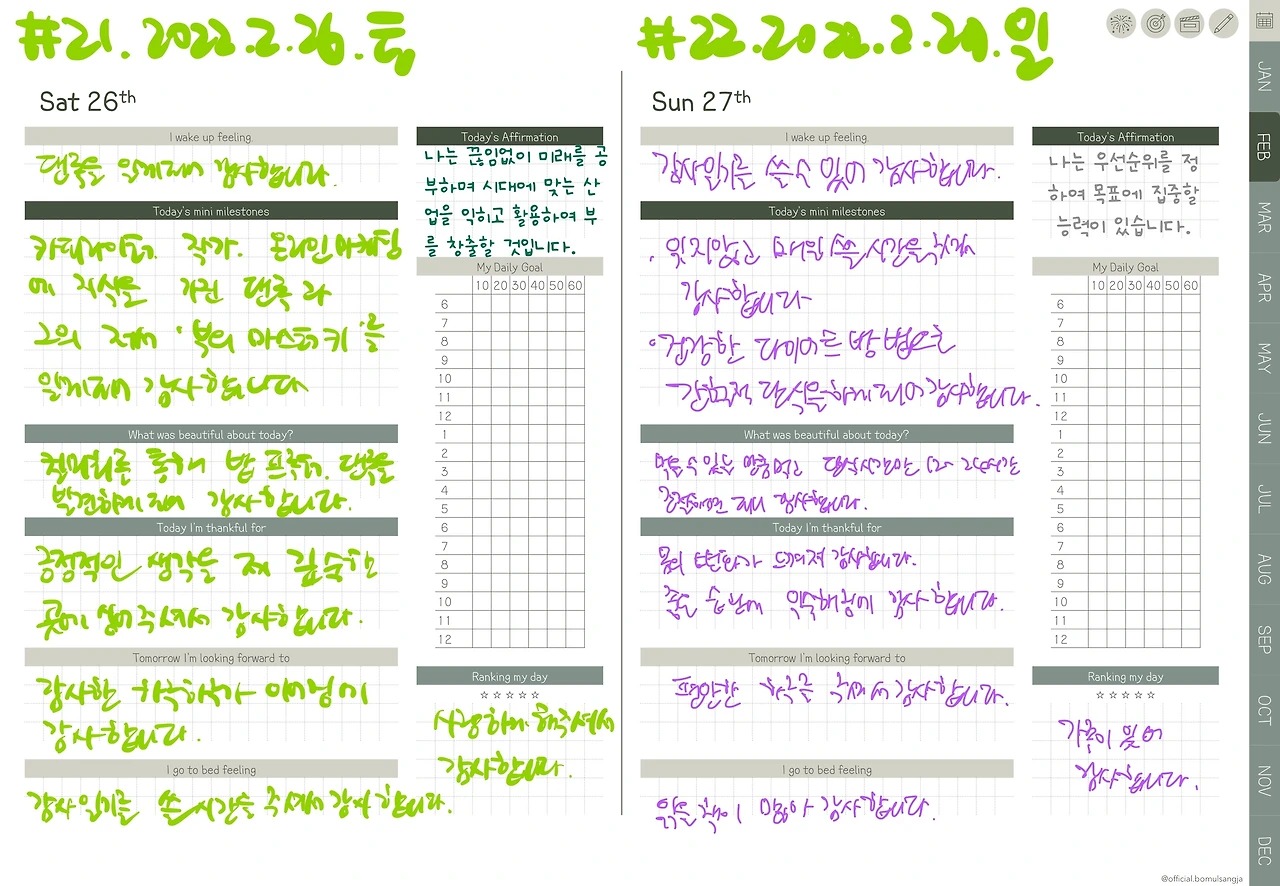 #21. 2022.2.26.토
Sat 26th
I wake up feeling.
알게되어 감사합니다.
Today's mini milestones
작가. 온라인마케팅
에 지식을 가진
그의 저서 '부의 마스터키'를
알게되어 감사합니다
What was beautiful about today?
통해 밥 프록터.
발견하게 되어 감사합니다.
Today I'm thankful for
긍정적인 생각을 제 깊숙한
곳에 심어주셔서 감사합니다.
Tomorrow I'm looking forward to
감사한
감사합니다.
I go to bed feeling
감사일기를 쓸 시간을 주셔서 감사합니다.
Today's Affirmation
나는 끊임없이 미래를 공
부하며 시대에 맞는 산
업을 익히고 활용하여 부
를 창출할 것입니다.
My Daily Goal
10 20 30 40 50 60
6
7
8
9
10
11
12
1
2
3
4
5
6
7
8
9
10
11
12
Ranking my day
해주셔서
감사합니다.
#22.2022.2.27.일
Sun 27th
I wake up feeling.
감사일기를 쓸 수 있어 감사합니다.
Today's mini milestones
. 잊지않고 매일 쓸 시간을 주셔서
감사합니다
• 건강한 다이어트 방법으로
간헐적 단식을 하게 되어 감사합니다.
What was beautiful about today?
먹을 수 있는 만큼 먹고
감사합니다.
Today I'm thankful for
몸의 변화가 느껴져 감사합니다.
익숙해짐에 감사합니다.
Tomorrow I'm looking forward to
평안한 하루를 주셔서 감사합니다.
I go to bed feeling
읽을 책이 많아 감사합니다.
Today's Affirmation
나는 우선순위를 정
하여 목표에 집중할
능력이 있습니다.
My Daily Goal
10 20 30 40 50 60
6
7
8
9
10
11
12
1
2
3
4
5
6
7
8
9
10
11
12
Ranking my day
가족이 있어
감사합니다.
JAN
FEB
MAR
APR
MAY
JUN
JUL
AUG
SEP
OCT
NOV
DEC
@official.bomulsangja